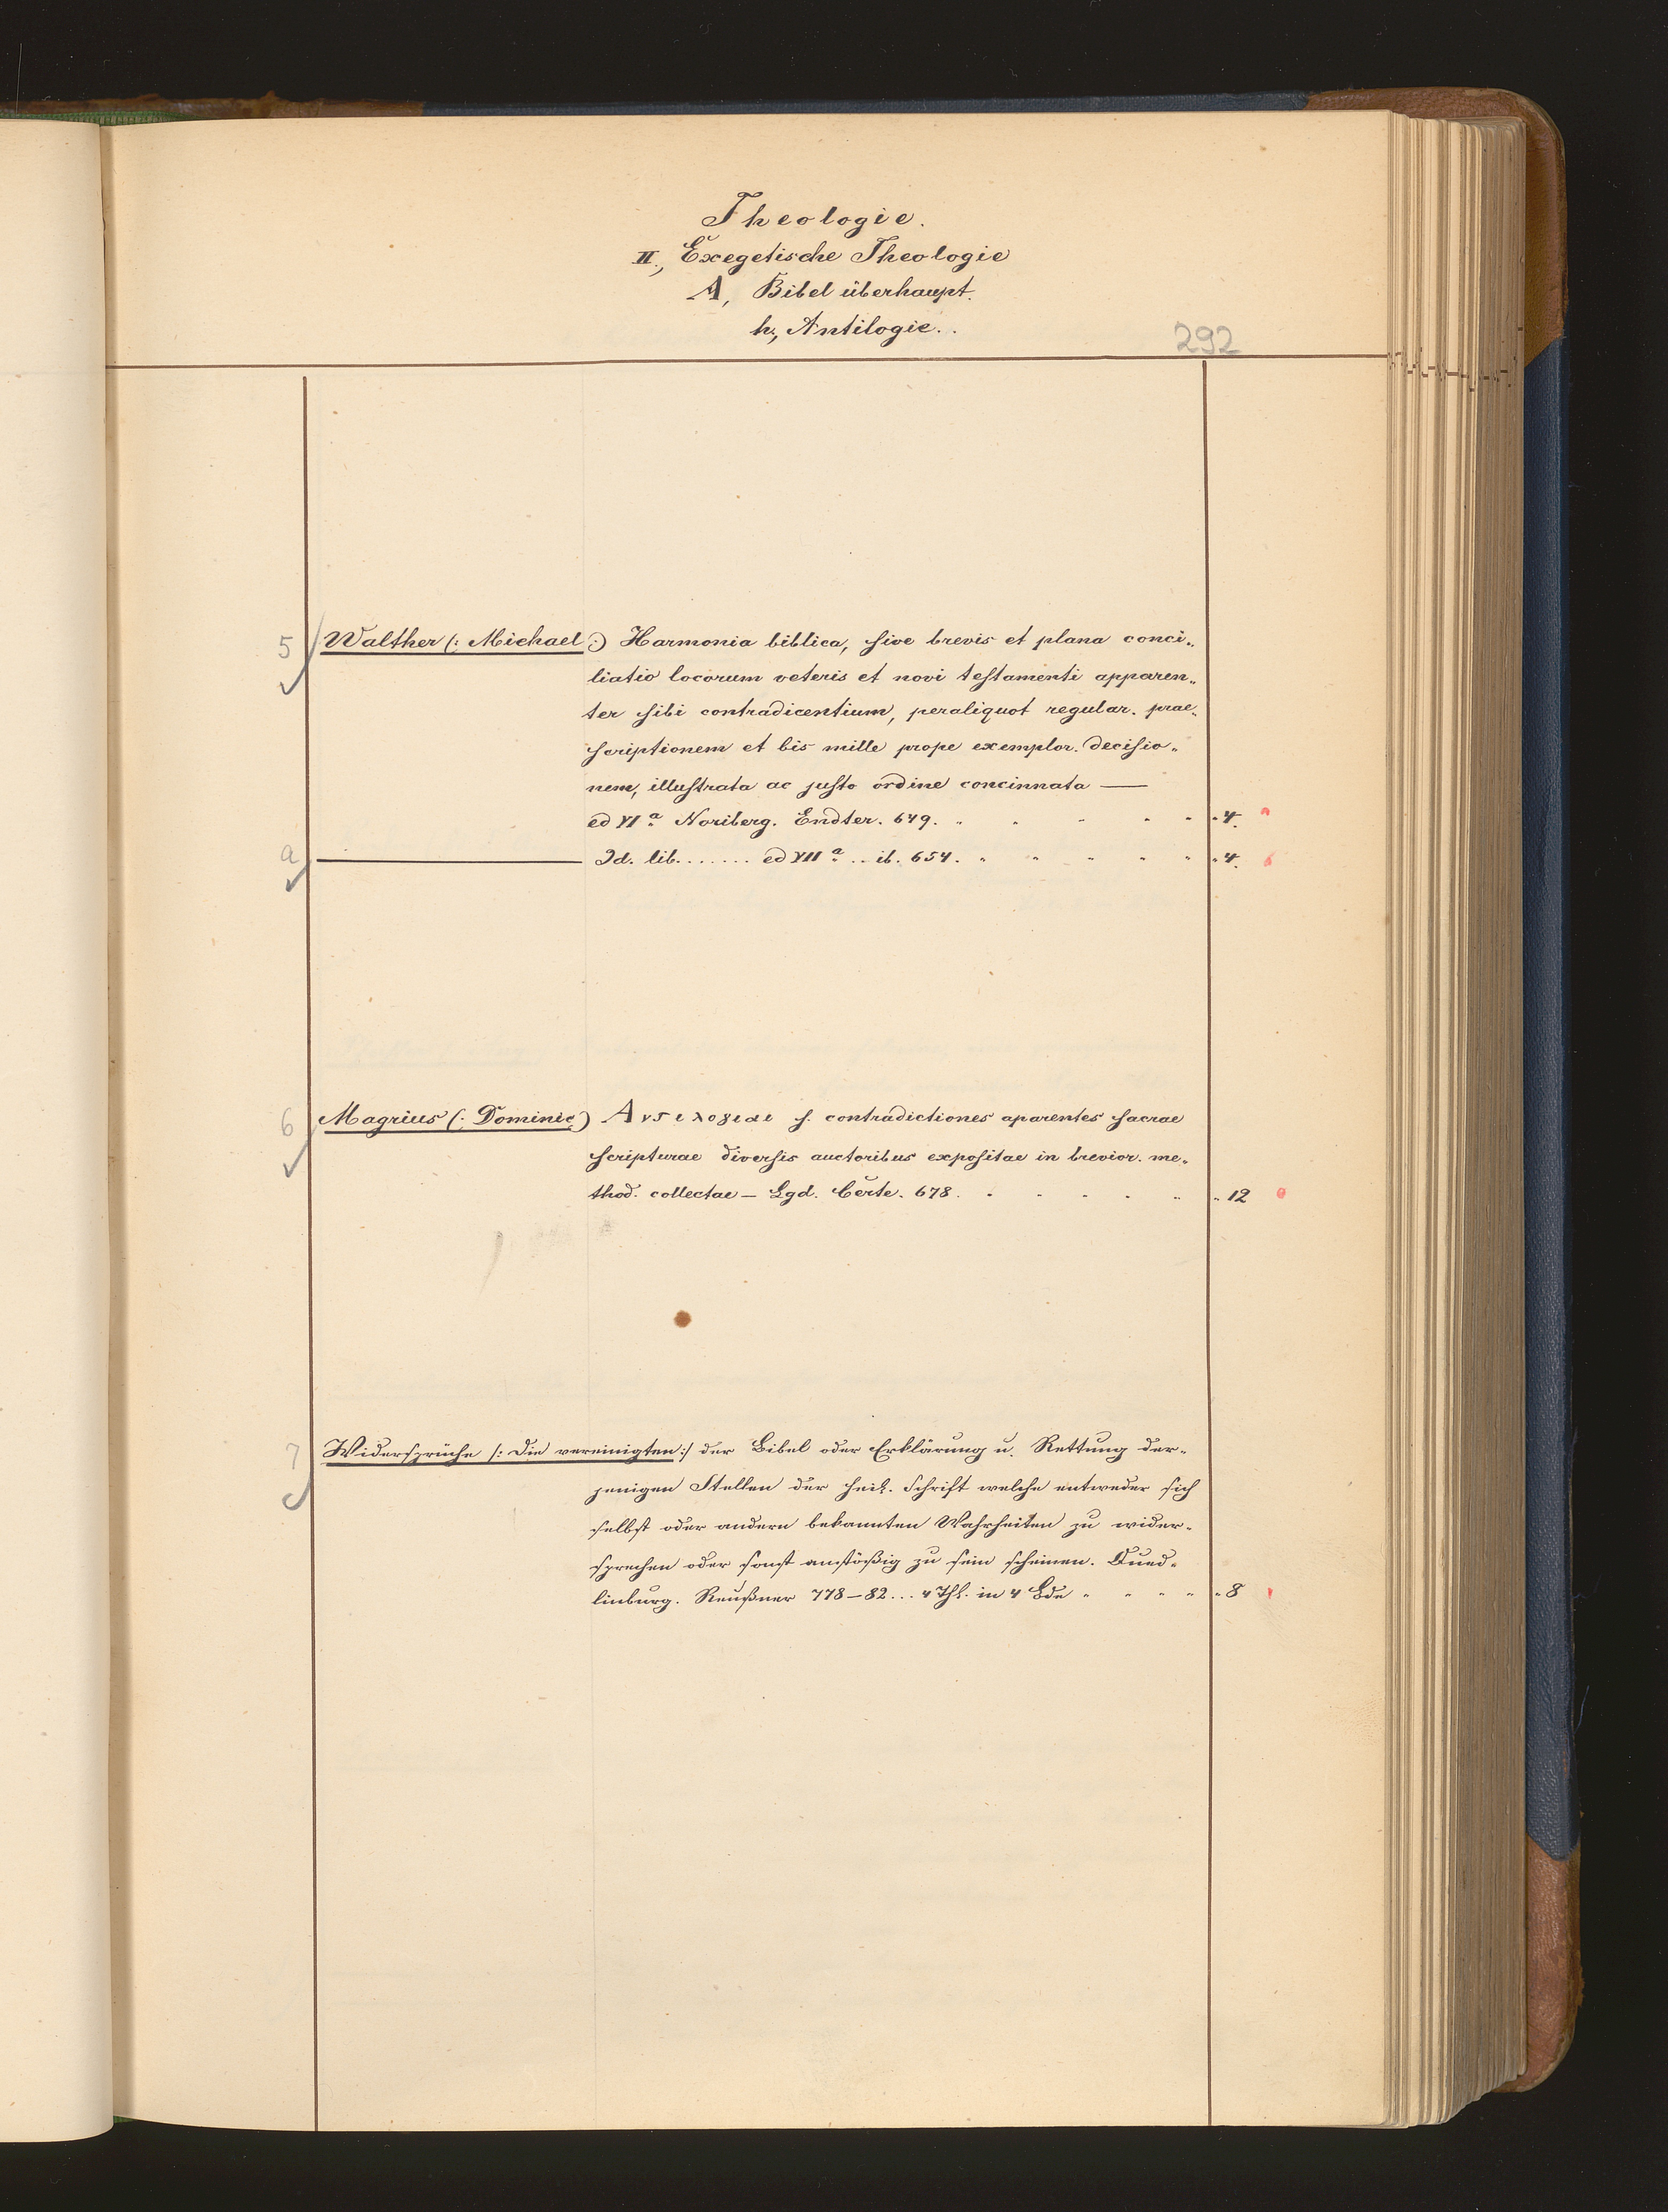 Theologie.
II., Exegetische Theologie
A, Bibel überhaupt.
h., Antilogie..
292
5 Walther (: Michael :) Harmonia biblica, sive brevis et plana conci„
liatio locorum veteris et novi testamenti apparen„
ter sibi contradicentium, peraliquot regular. prae„
scriptionem et bis mille prope exemplor. decisio„
nem, illustrata ac justo ordine concinnata —
ed VI a Noriberg. Endter. 649. „ „ „ „ „ „ 4.
a — Id. lib....... ed VII a .. ib. 654. „ „ „ „ „ „ 4.
6 Magrius (: Dominic) Αντιλογιαι s. contradictiones aparentes sacrae
scripturae diversis auctoribus expositae in brevior. me„
thod. collectae — Lgd. 678. „ „ „ „ „ „ 12
7 Widersprüche /: Die vereinigten :/ der Bibel oder Erklärung u. Rettung der-
jenigen Stellen der heil. Schrift welche entweder sich
selbst oder andern bekannten Wahrheiten zu wider-
sprechen oder sonst anstößig zu sein scheinen. Qued-
linburg. Reußner 778–82... 4 Thl. in 4 Bde „ „ „ „ „ 8